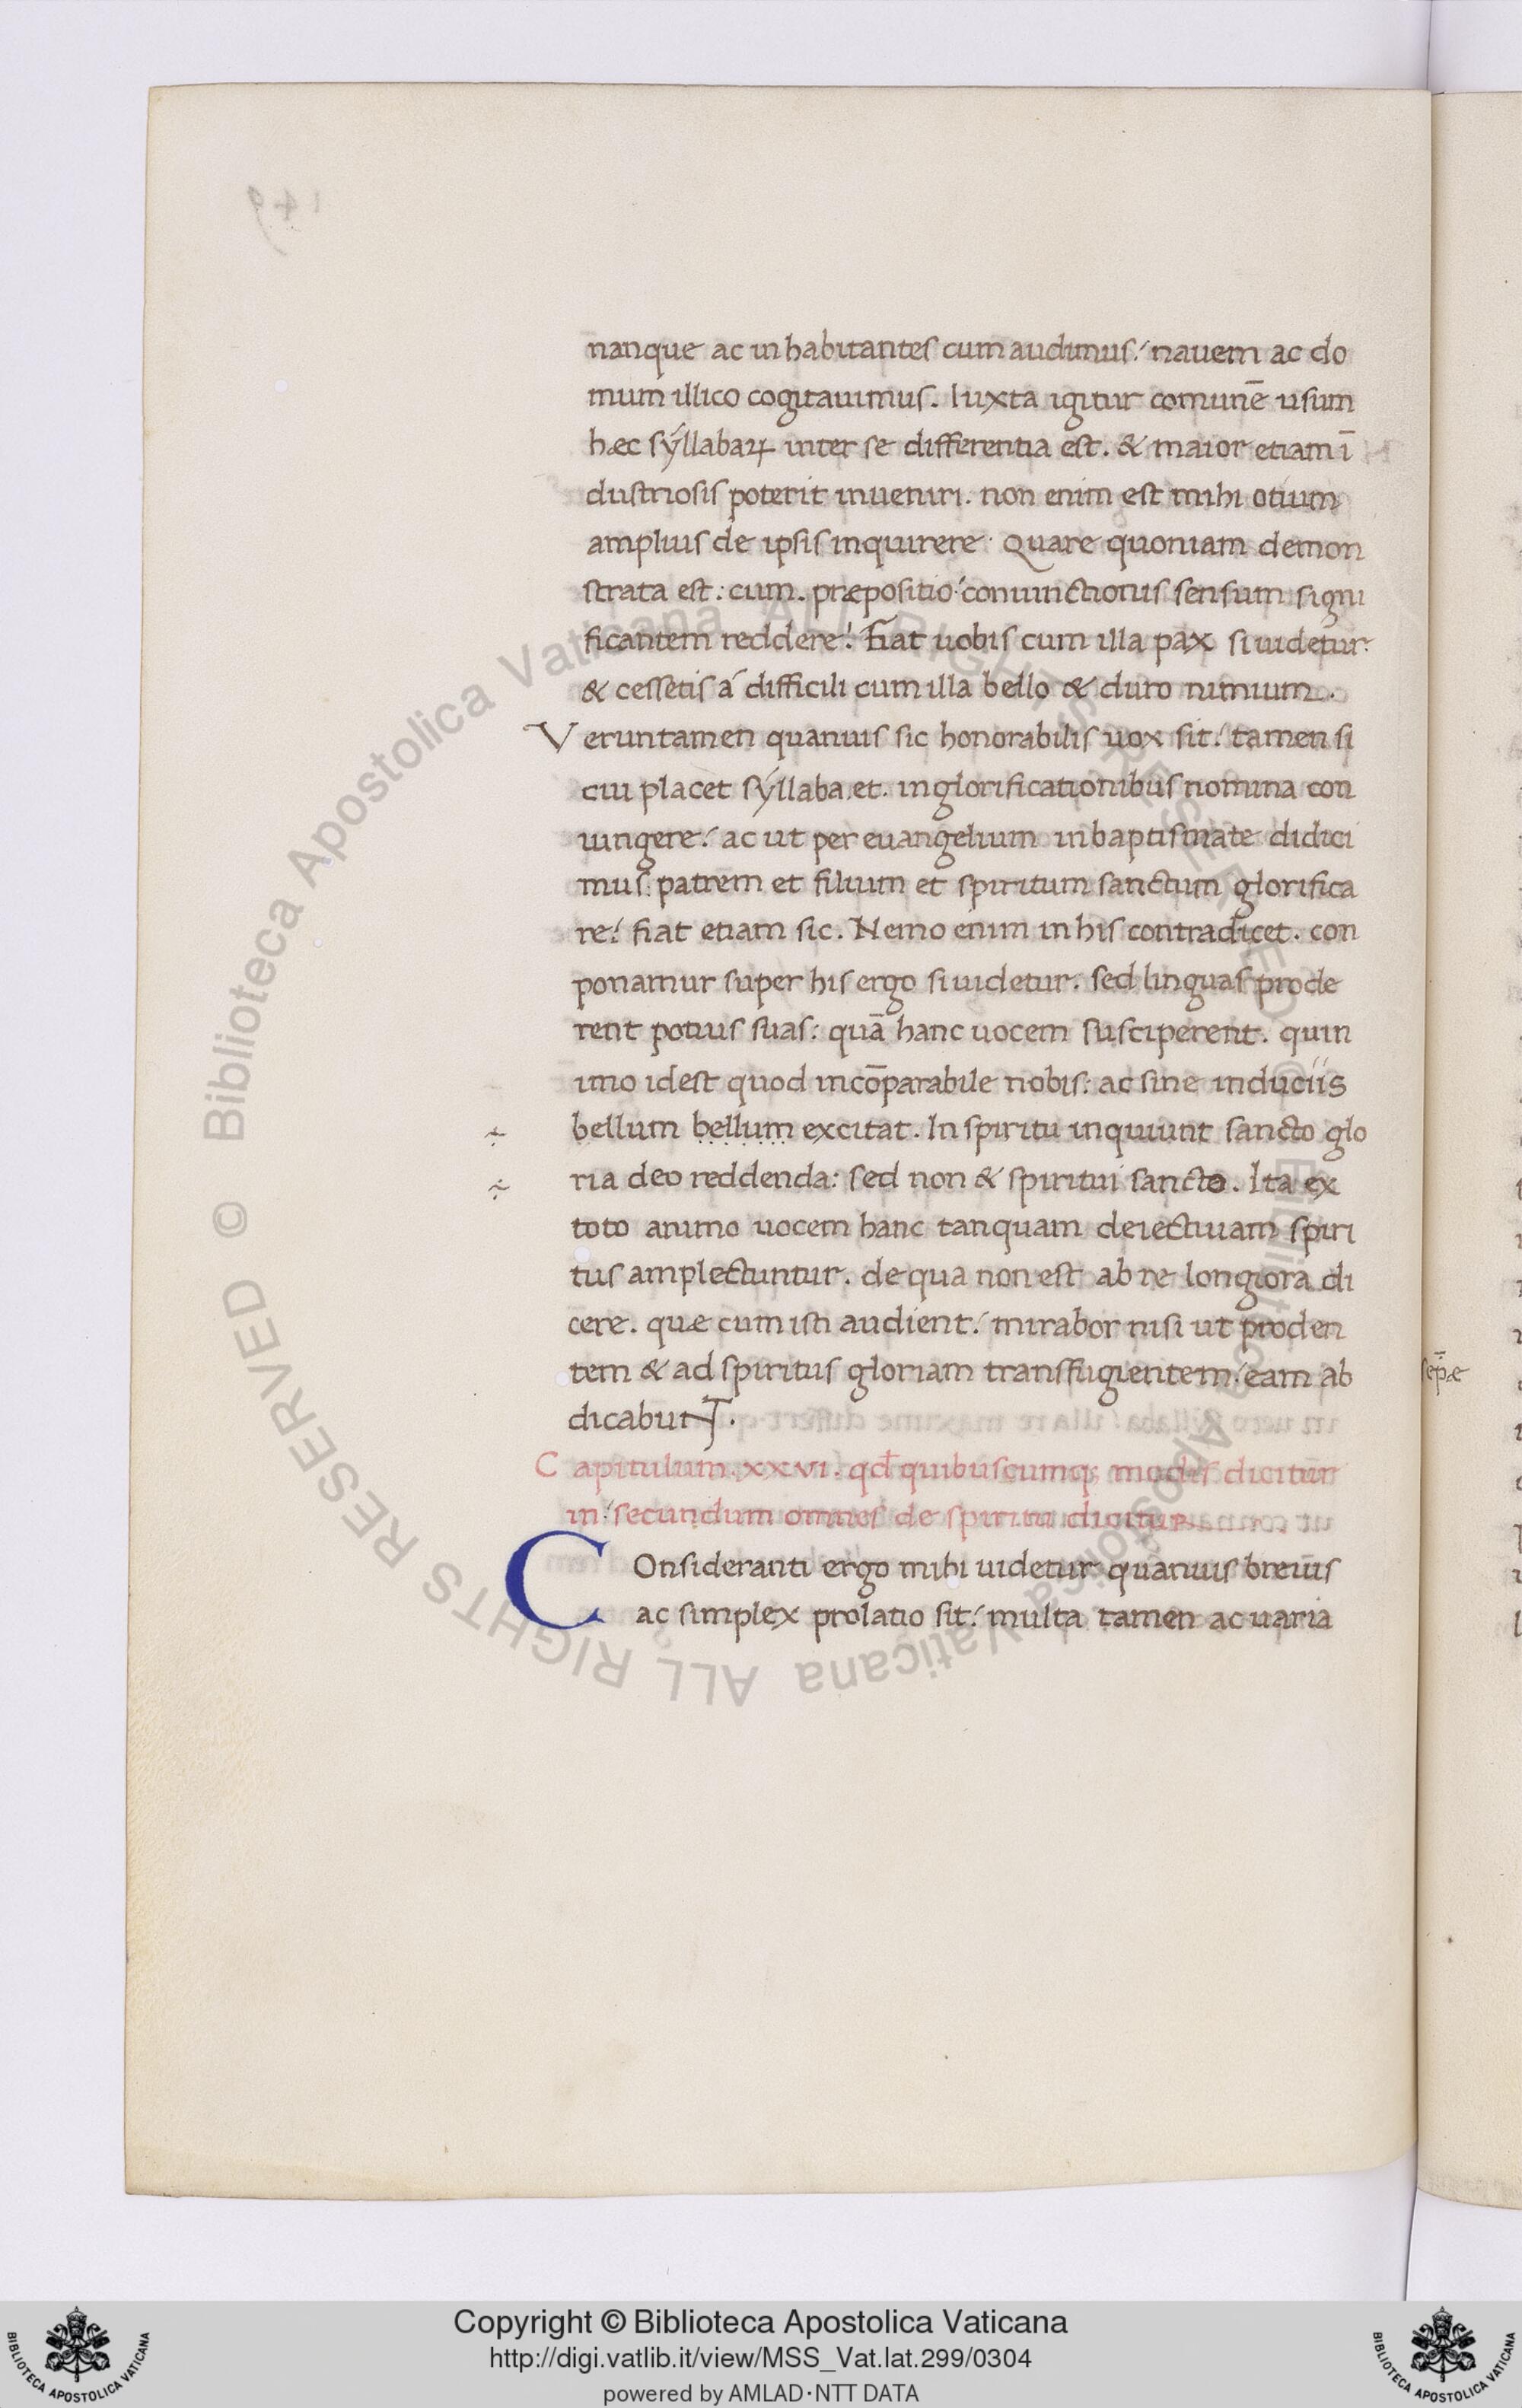 nanque ac inhabitantes cum audimus: nauem ac do
mum illico cogitauimus. Iuxta igitur comunē usum
hæc sýllabaꝝ inter se differentia est. & maior etiam ī
dustriosis poterit inueniri. non enim est mihi otium
amplius de ipsis inquirere. Quare quoniam demon
strata est: cum. præpositio coniunctionis sensum signi
ficantem reddere! Fiat uobis cum illa pax si uidetur.
& cessetis á difficili cum illa bello & duro nimium.
Veruntamen quanuis sic honorabilis uox sit: tamen si
cui placet sýllaba.et. in glorificationibus nomina con
iungere: ac ut per euangelium in baptismate didici
mus: patrem et filium et spiritum sanctum glorifica
re: fiat etiam sic. Nemo enim in his contradicet. con
ponamur super his ergo si uidetur. sed linguas prode
rent potius suas: quā hanc uocem susciperent. quin
imo idest quod incōparabile nobis: ac sine induciis
bellum bellum excitat. In spiritu inquiunt sancto glo
ria deo reddenda: sed non & spiritui sancto. Ita ex
toto animo uocem hanc tanquam deiectiuam spiri
tus amplectuntur. de qua non est ab re longiora di
cere. quæ cum isti audient: mirabor nisi ut proden
tem & ad spiritus gloriam transfugientem: eam ab
dicabunt.
Capitulum. xxvi. qđ quibuscumqꝫ modis dicitur
in: secundum omnes de spiritu dicitur
COnsideranti ergo mihi uidetur quanuis breuis
ac simplex prolatio sit: multa tamen ac uaria
Copyright © Biblioteca Apostolica Vaticana
http://digi.vatlib.it/view/MSS_Vat.lat.299/0304
powered by AMLAD·NTT DATA